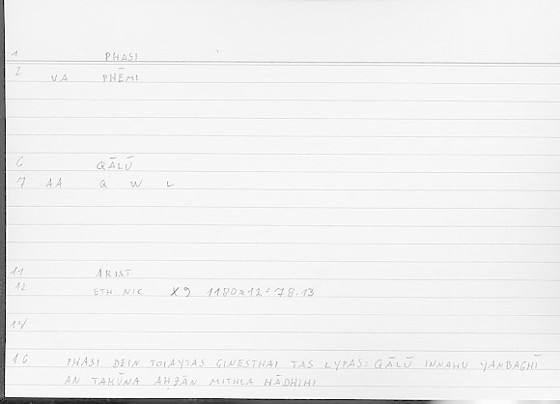 1 PHASI
2 VA PHĒMI
6 QĀLŪ
7 AA Q W L
11 ARIST
12 ETH NIC X9 1180a12=78.13
14
16 PHASI DEIN TOIAYTAS GINESTHAI TAS LYPAS=QĀLŪ INNAHU YANBAGHĪ
AN TAKŪNA AḤZĀN MITHLA HĀDHIHI